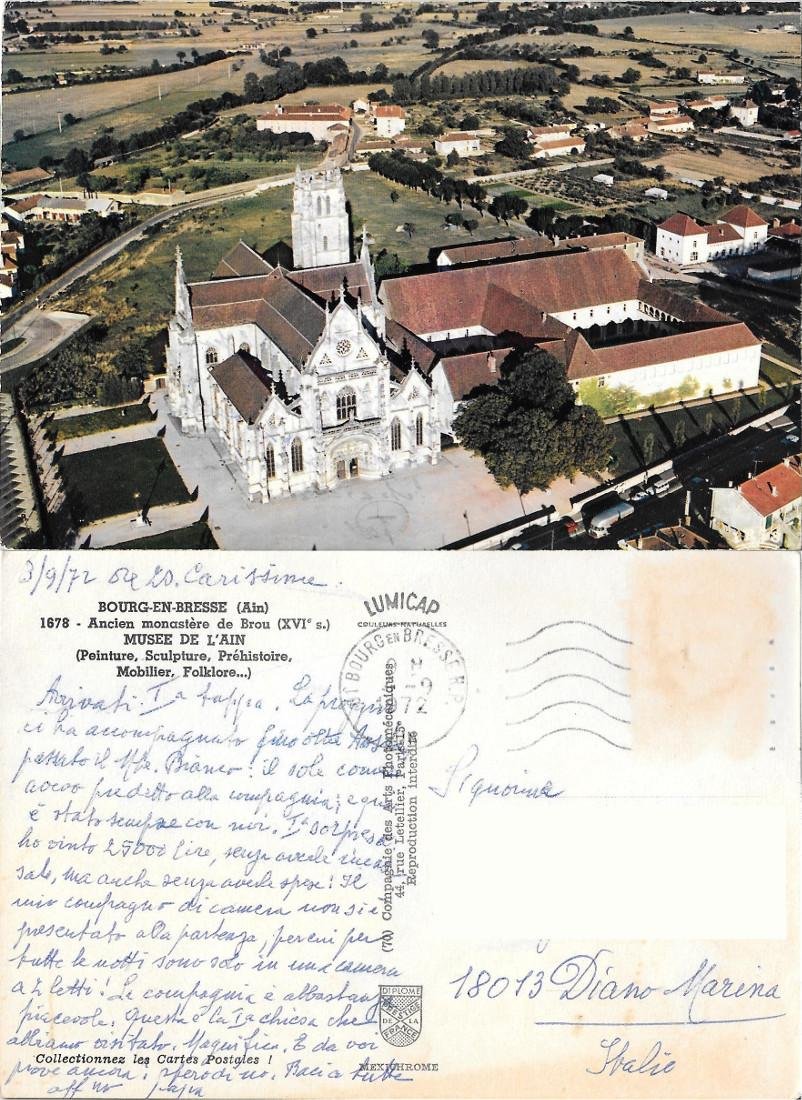 3/9/72 ore 20. Carissime.
BOURG-EN-BRESSE (Ain)
1678 - Ancien monastère de Brou (XVIe s.)
MUSEE DE L'AIN
(Peinture, Sculpture, Préhistoire,
Mobilier, Folklore...)
LUMICAP
COULEURS NATURELLES
BOURG EN BRESSE R.P.
1972
Arrivati. Ia tappa. La pioggia
ci ha accompagnato fino oltre Aosta
passato il M/te Bianco! il sole come
avevo predetto alla compagnia; e qui
è stato sempre con noi. Ia sorpresa
ho vinto 25000 lire, senza averle
sale, ma anche senza averle spese! Il
mio compagno di camera non si è
presentato alla partenza, per cui per
tutte le notti sono solo in una camera
a 2 letti! La compagnia è abbastanza
piacevole. Questa è la Ia chiesa che
abbiamo visitato. Magnifica. E da voi
piove ancora? spero di no. Baci a tutte
aff/mo papà
Collectionnez les Cartes Postales !
(70) Compagnie des Arts Photomécaniques
44, rue Letellier, Paris-15e
Reproduction interdite
DIPLOME
PRESTIGE
DE LA
FRANCE
MEXICHROME
Signorina
18013 Diano Marina
Italie